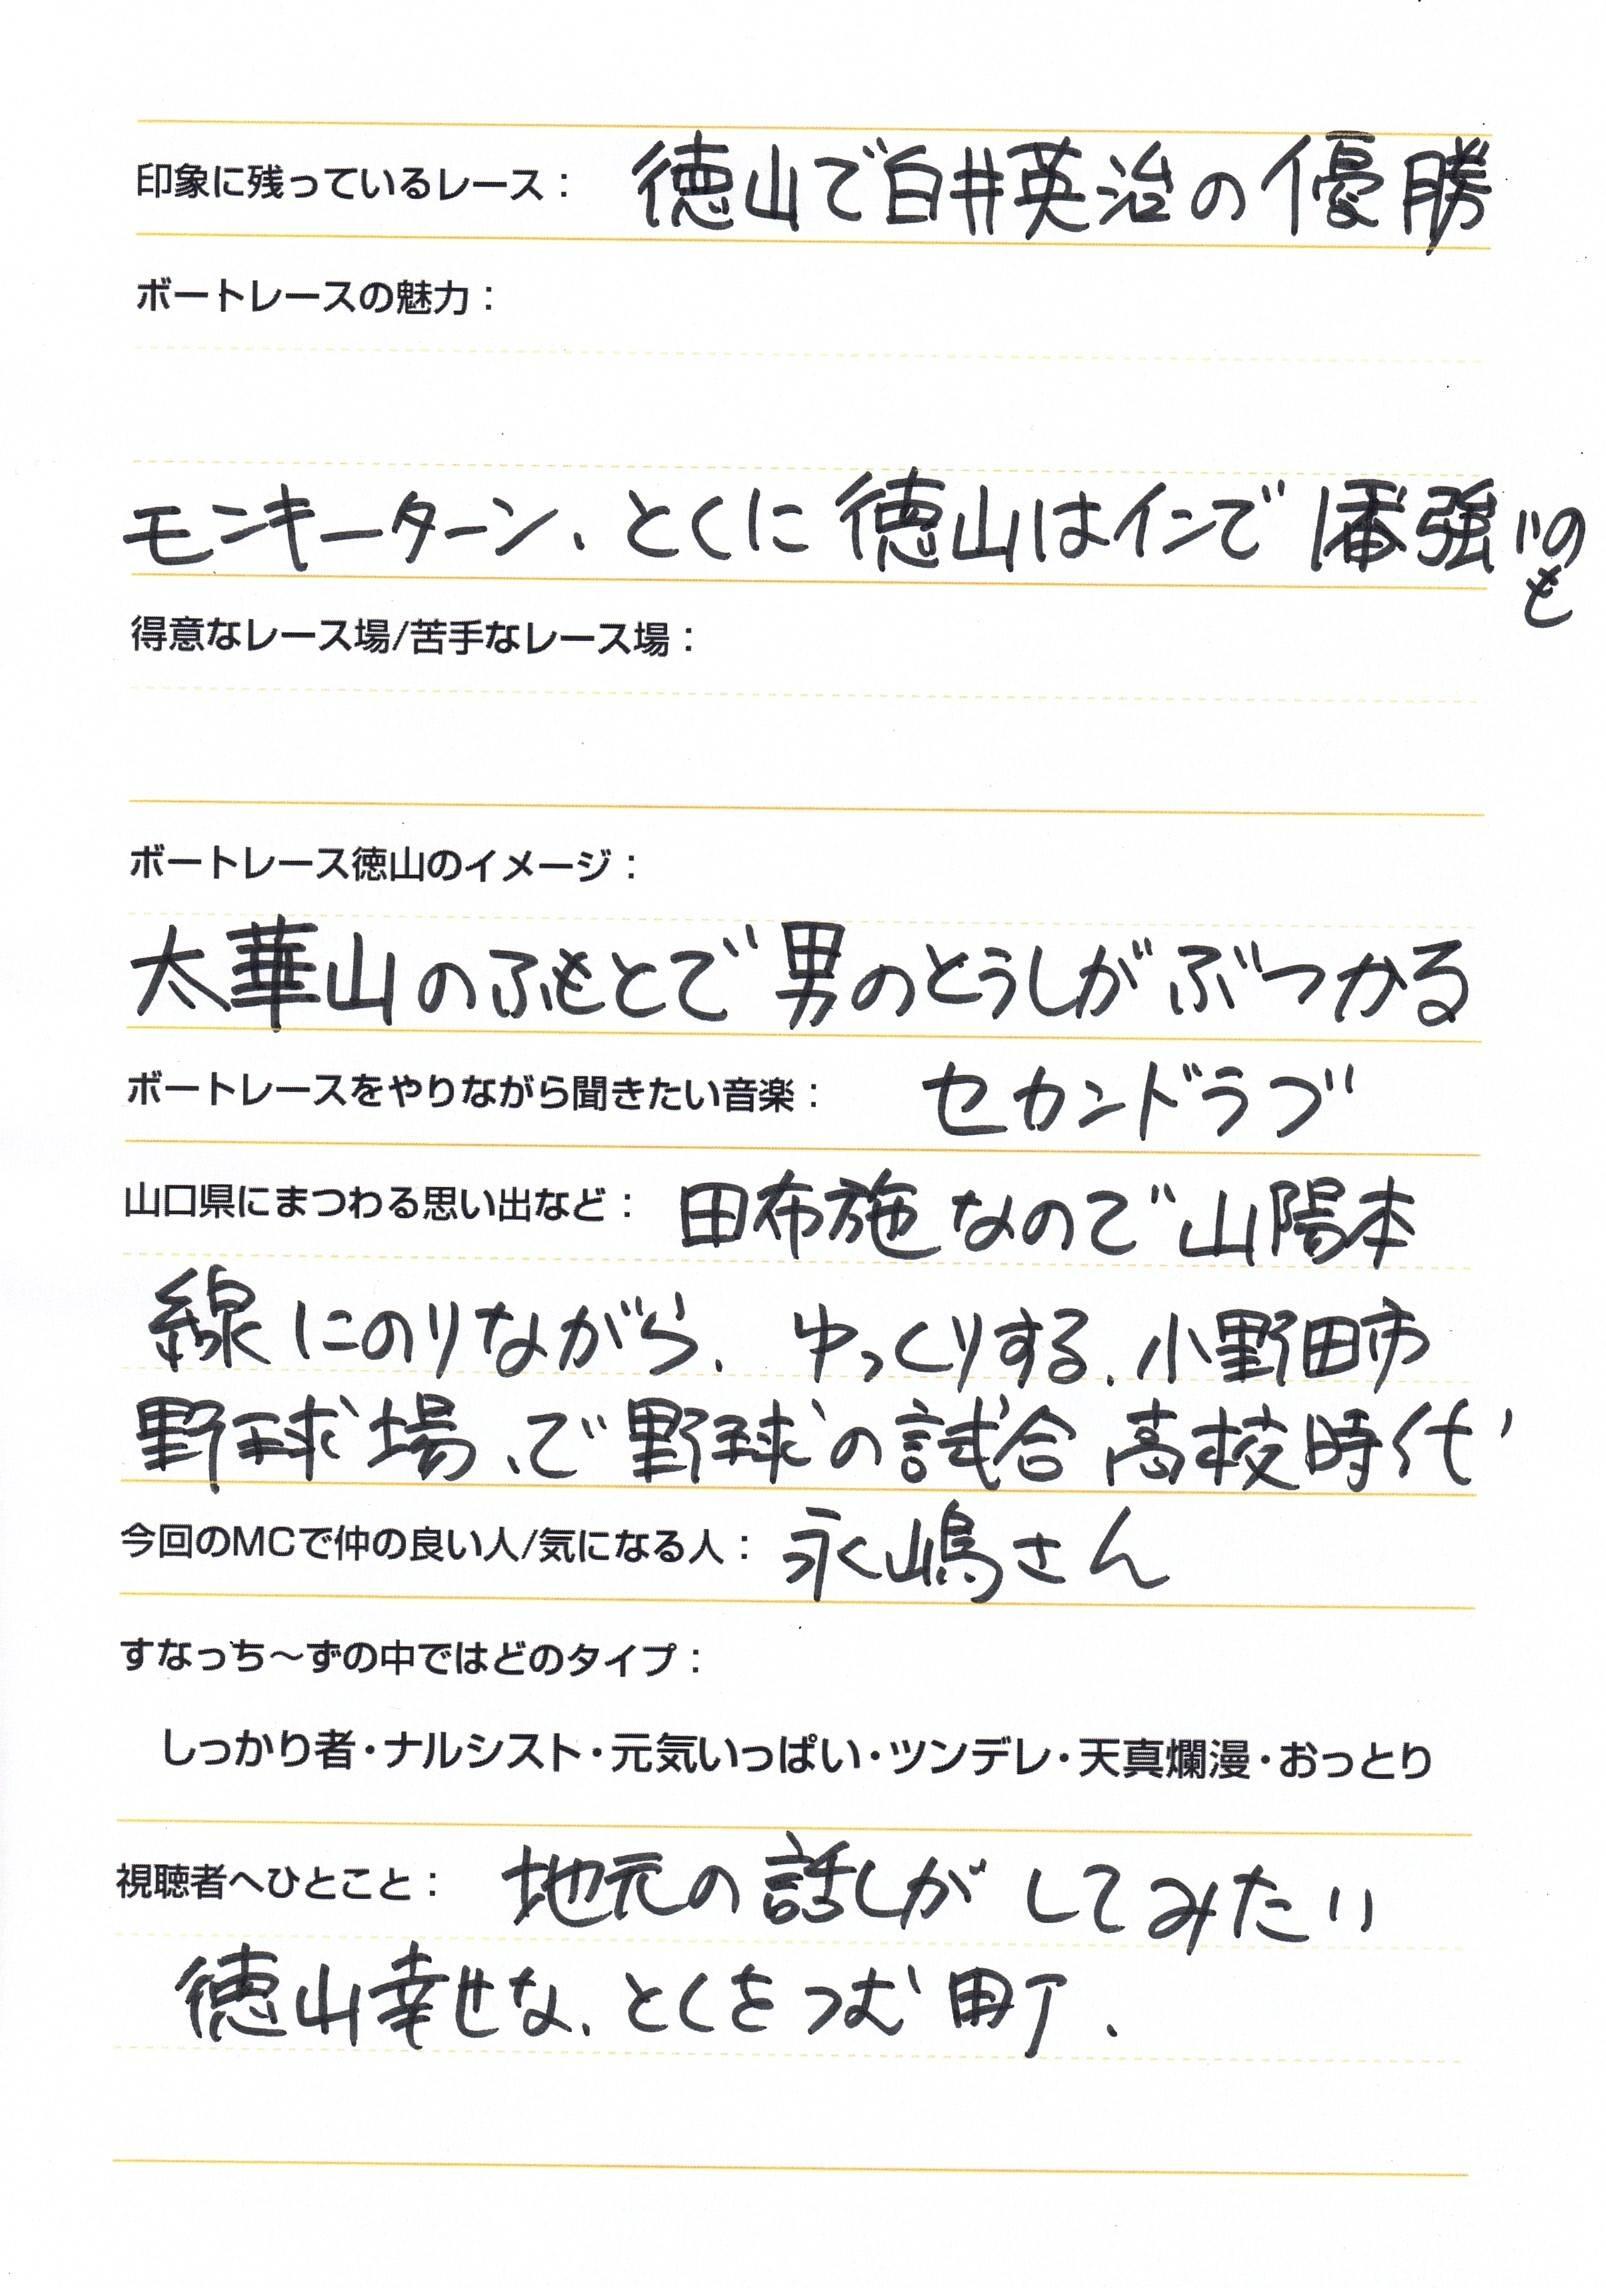 印象に残っているレース： 徳山で白井英治の優勝
ボートレースの魅力：
モンキーターン、とくに徳山はインで1番強いのも
得意なレース場/苦手なレース場：
ボートレース徳山のイメージ：
太華山のふもとで男のとうしがぶつかる
ボートレースをやりながら聞きたい音楽： セカンドラブ
山口県にまつわる思い出など： 田布施なので山陽本
線にのりながら、ゆっくりする、小野田市
野球場、で野球の試合 高校時代
今回のMCで仲の良い人/気になる人： 永嶋さん
すなっち～ずの中ではどのタイプ：
しっかり者・ナルシスト・元気いっぱい・ツンデレ・天真爛漫・おっとり
視聴者へひとこと： 地元の話しがしてみたい
徳山幸せな、とくをつむ町、